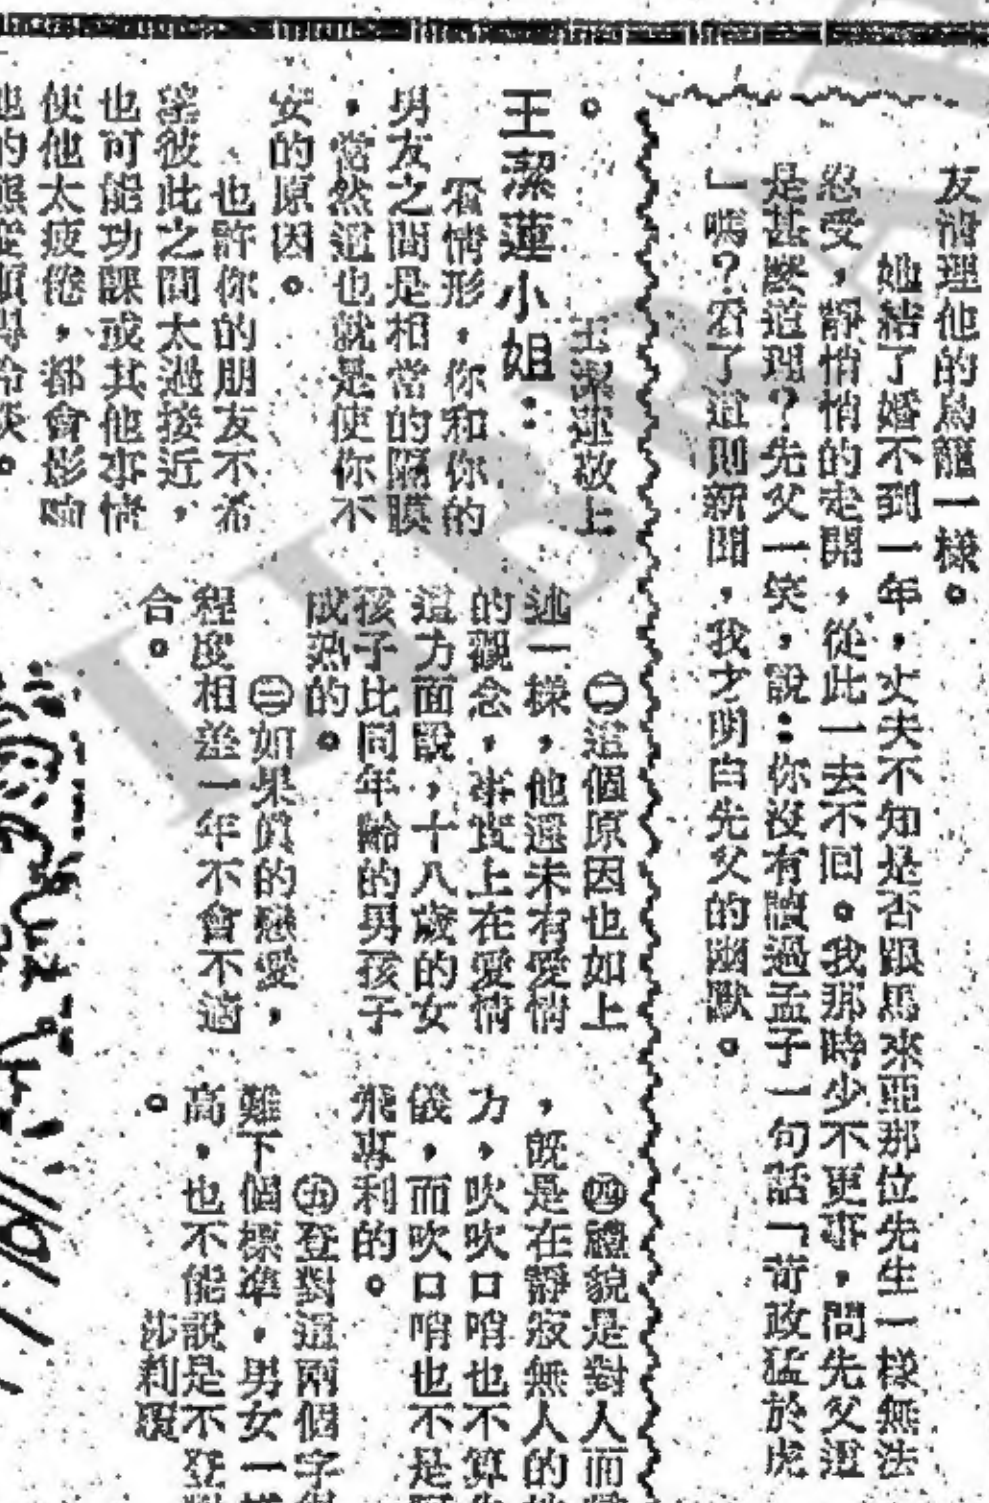 友清理他的鳥籠一樣。
她結了婚不到一年，丈夫不知是否跟馬來亞那位先生一樣無法
忍受，靜悄悄的走開，從此一去不回。我那時少不更事，問先父這
是甚麼道理？先父一笑，說：你沒有讀過孟子一句話「苛政猛於虎
」嗎？看了這則新聞，我才明白先父的幽默。
王潔蓮敬上
。
王潔蓮小姐：
看情形，你和你的
男友之間是相當的隔膜
，當然這也就是使你不
安的原因。
也許你的朋友不希
望彼此之間太過接近，
也可能功課或其他事情
使他太疲倦，都會影响
他的態度顯得冷淡。
㊁這個原因也如上
述一樣，他還未有愛情
的觀念，事實上在愛情
這方面說，十八歲的女
孩子比同年齡的男孩子
成熟的。
㊂如果真的戀愛，
程度相差一年不會不適
合。
㊃禮貌是對人而
，既是在靜寂無人的
力，吹吹口哨也不算
儀，而吹口哨也不是
飛專利的。
㊄登對這兩個字
難下個標準，男女一
高，也不能說是不登
。
莎莉覆
LIBRA